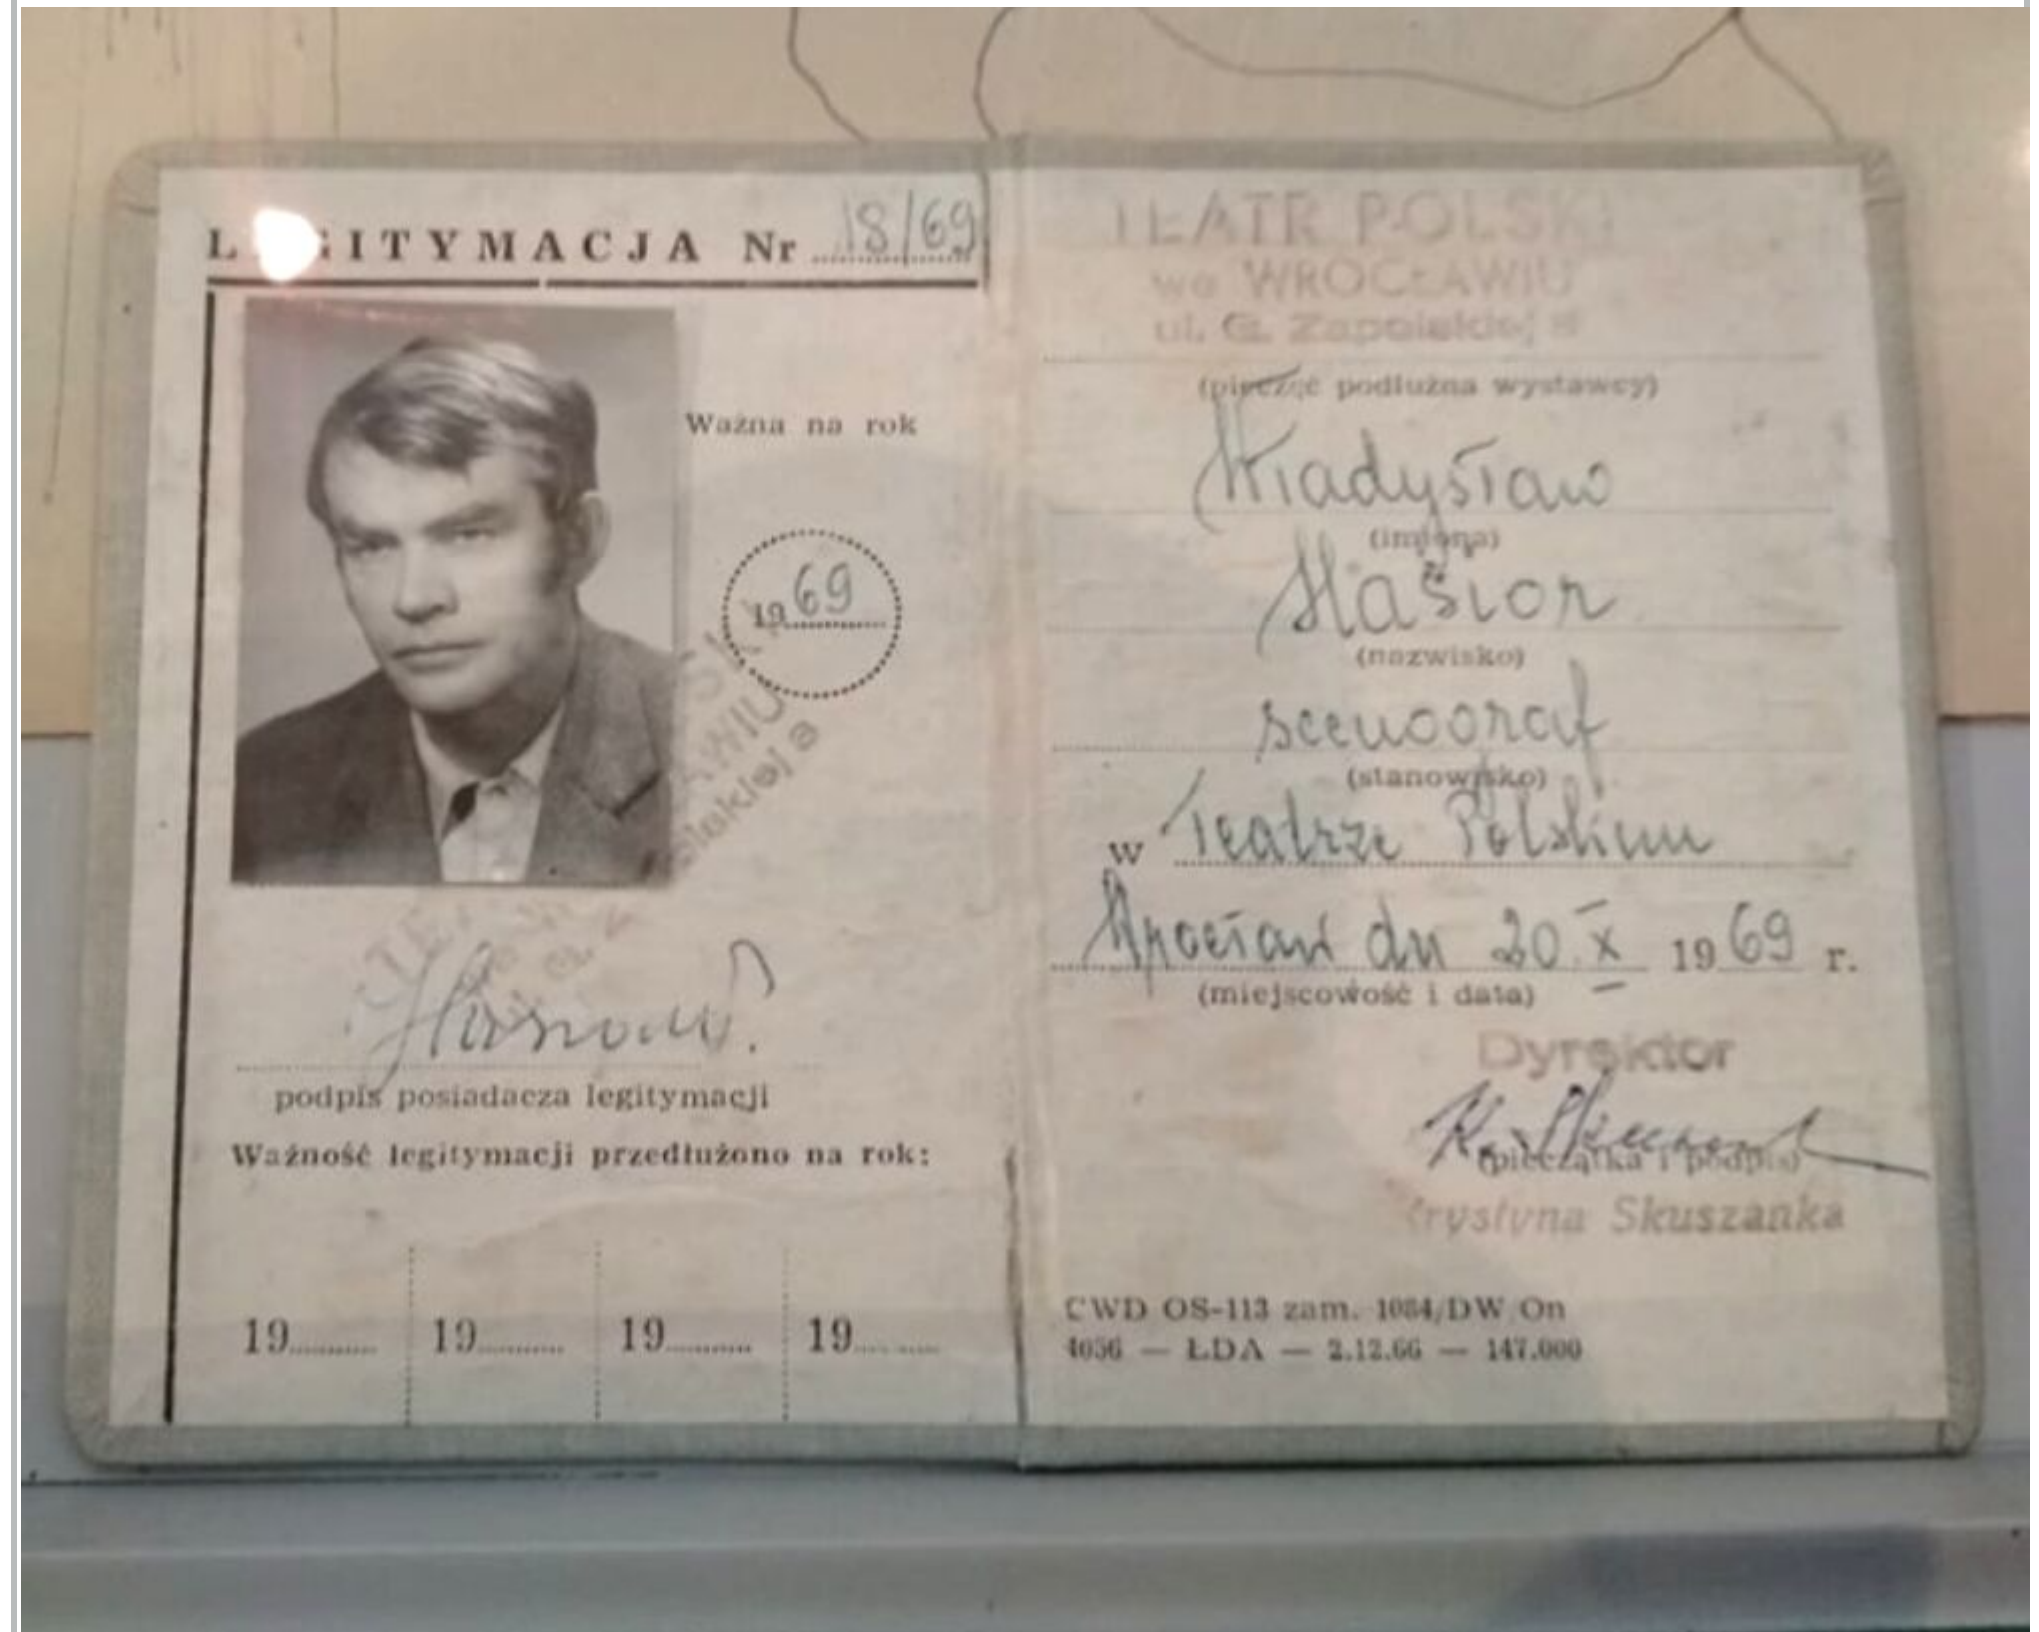 LEGITYMACJA Nr 18/69
Ważna na rok
1969
podpis posiadacza legitymacji
Ważność legitymacji przedłużono na rok:
19 19 19 19
TEATR POLSKI
we WROCŁAWIU
ul. G. Zapolskiej 3
(pieczęć podłużna wystawcy)
Władysław
(imiona)
Hasior
(nazwisko)
scenograf
(stanowisko)
w Teatrze Polskim
Wrocław dn 20 X 1969 r.
(miejscowość i data)
Dyrektor
(pieczątka i podpis)
Krystyna Skuszanka
CWD OS-113 zam. 1084/DW On
4056 — ŁDA — 2.12.66 — 147.000